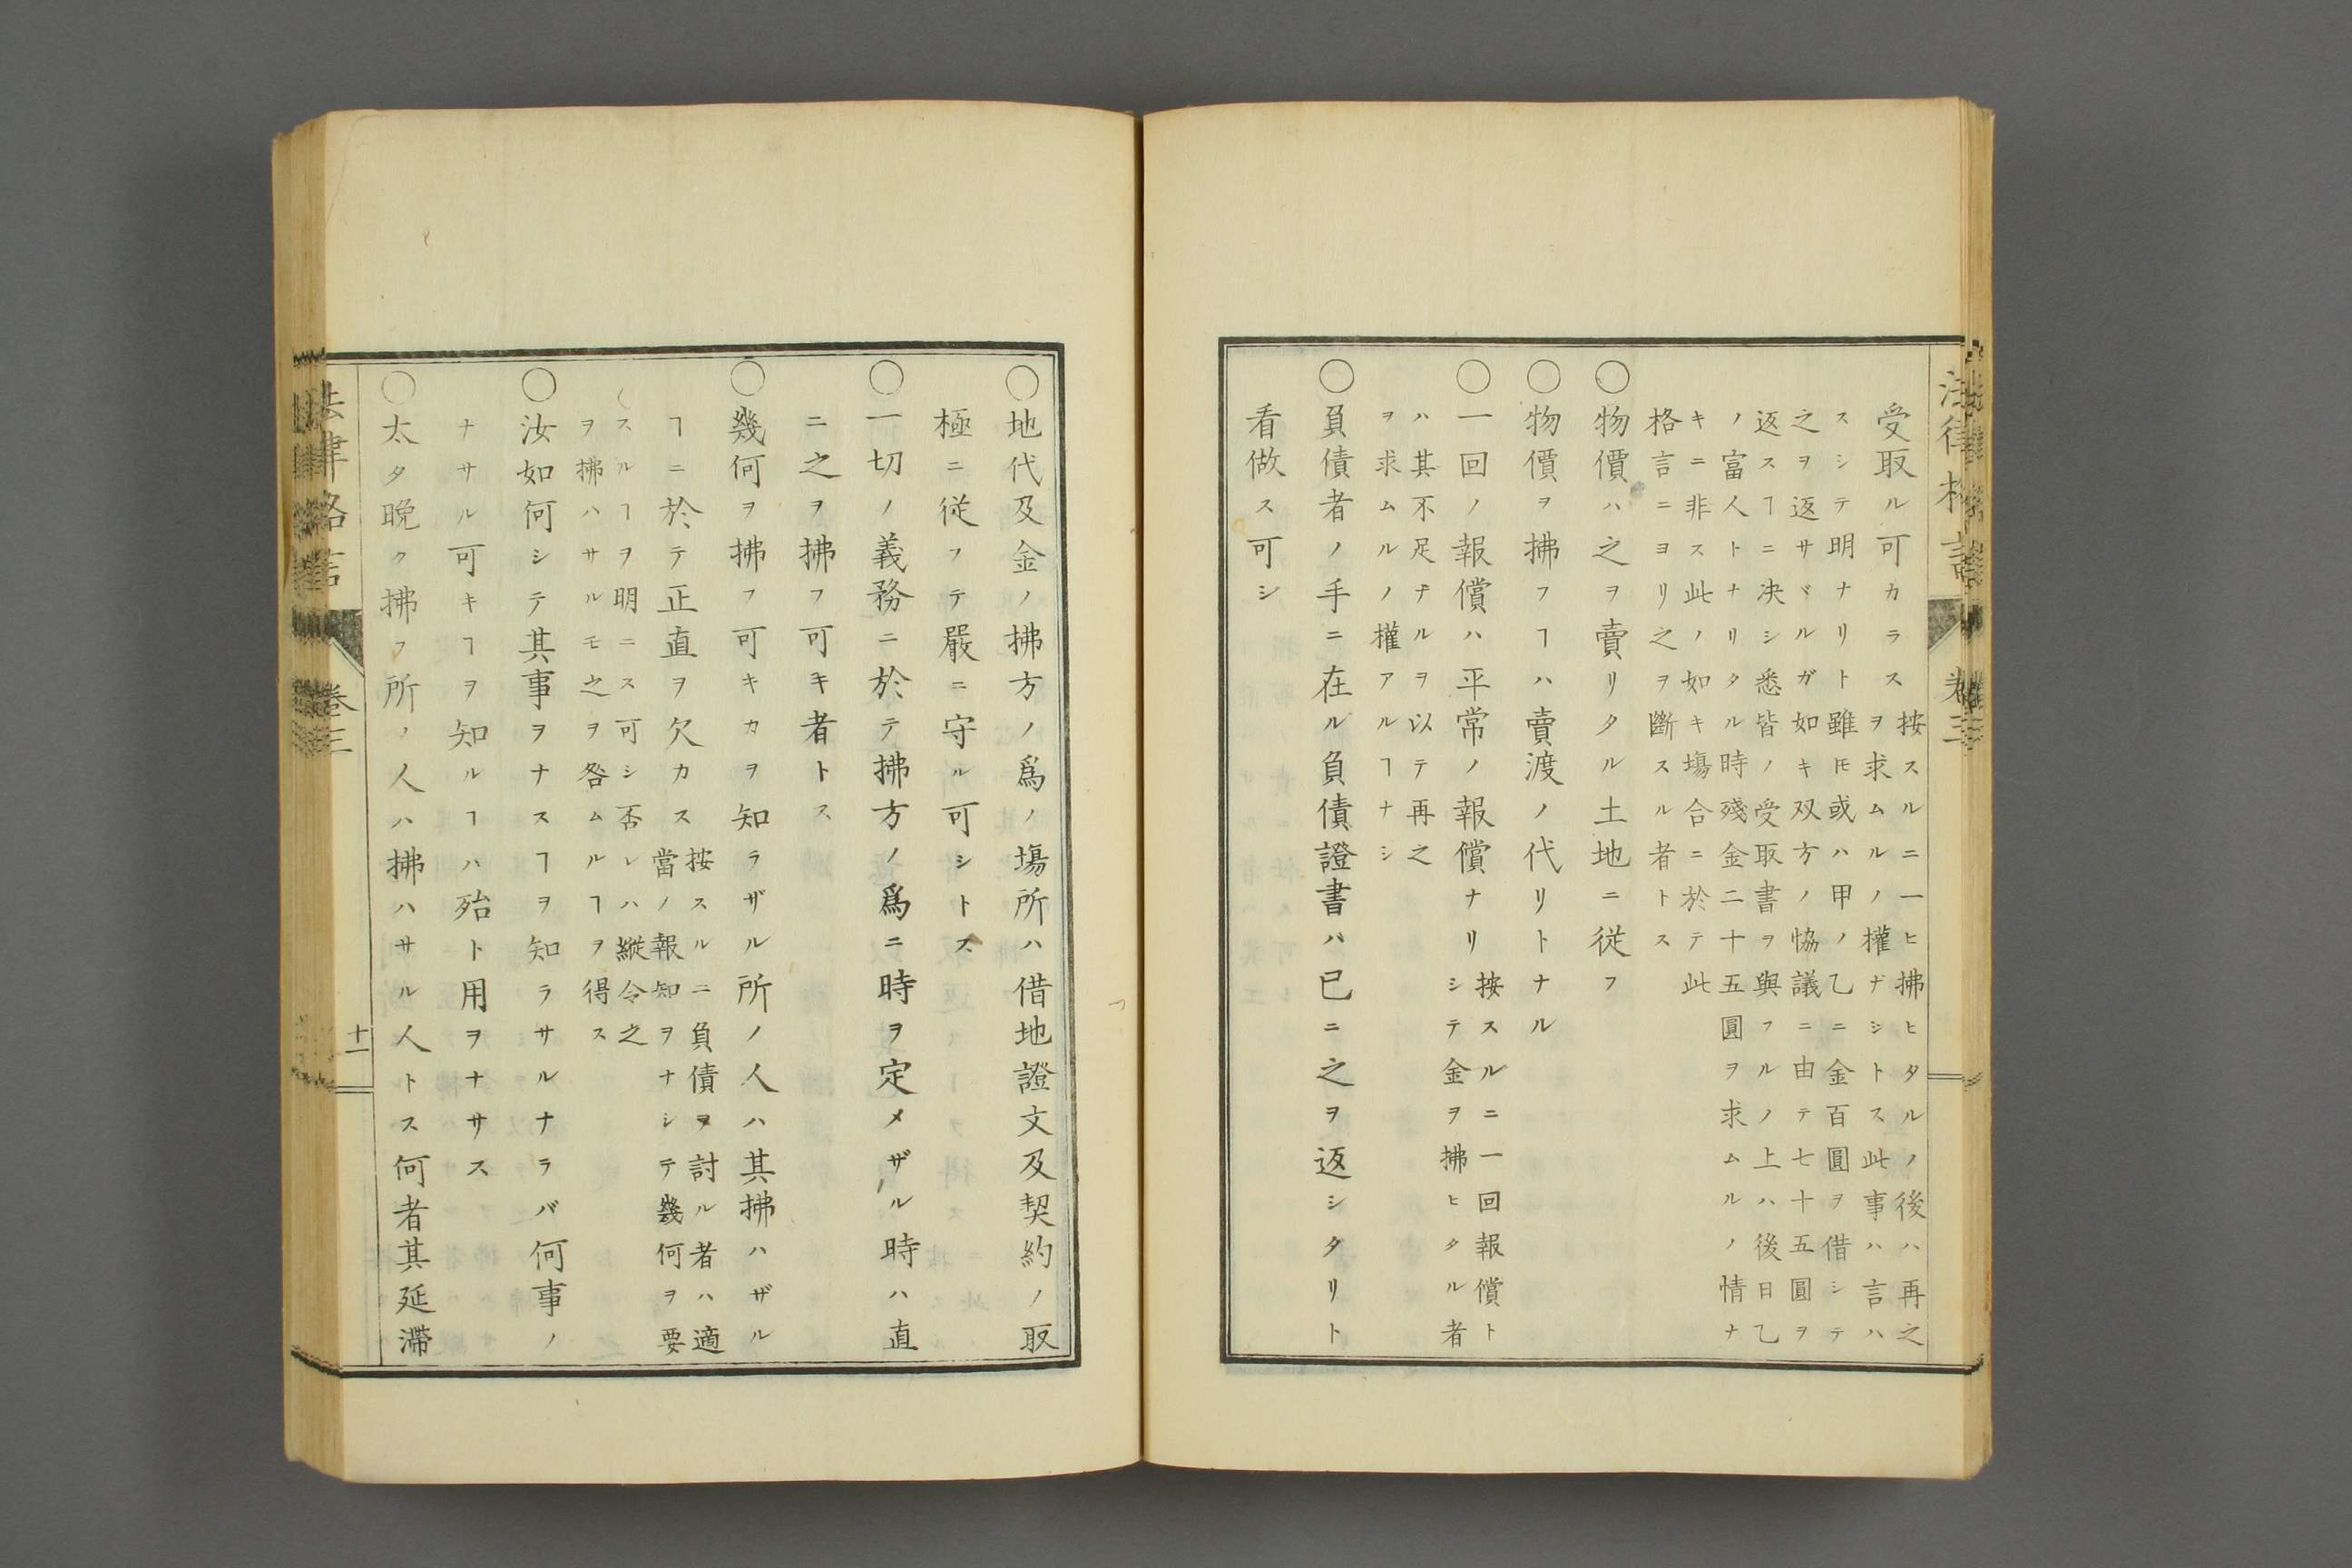 法律格言 巻三
受取ル可カラス
按スルニ一ヒ拂ヒタルノ後ハ再之
ヲ求ムルノ權ナシトス此事ハ言ハ
スシテ明ナリト雖𪜈或ハ甲ノ乙ニ金百圓ヲ借シテ
之ヲ返サヾルガ如キ双方ノ恊議ニ由テ七十五圓ヲ
返スヿニ决シ悉皆ノ受取書ヲ與フルノ上ハ後日乙
ノ富人トナリタル時殘金二十五圓ヲ求ムルノ情ナ
キニ非ス此ノ如キ塲合ニ於テ此
格言ニヨリ之ヲ斷スル者トス
○物價ハ之ヲ賣リタル土地ニ従フ
○物價ヲ拂フヿハ賣渡ノ代リトナル
○一回ノ報償ハ平常ノ報償ナリ
按スルニ一回報償ト
シテ金ヲ拂ヒタル者
ハ其不足ナルヲ以テ再之
ヲ求ムルノ權アルヿナシ
○負債者ノ手ニ在ル負債證書ハ已ニ之ヲ返シタリト
看做ス可シ
○地代及金ノ拂方ノ爲ノ塲所ハ借地證文及契約ノ取
極ニ従フテ嚴ニ守ル可シトス
○一切ノ義務ニ於テ拂方ノ爲ニ時ヲ定メザル時ハ直
ニ之ヲ拂フ可キ者トス
○幾何ヲ拂フ可キカヲ知ラザル所ノ人ハ其拂ハザル
ヿニ於テ正直ヲ欠カス
按スルニ負債ヲ討ル者ハ適
當ノ報知ヲナシテ幾何ヲ要
スルヿヲ明ニス可シ否レハ縱令之
ヲ拂ハサルモ之ヲ咎ムルヿヲ得ス
○汝如何シテ其事ヲナスヿヲ知ラサルナラバ何事ノ
ナサル可キヿヲ知ルヿハ殆ト用ヲナサス
○太タ晩ク拂フ所ノ人ハ拂ハサル人トス何者其延滯
法律格言 巻三 十一